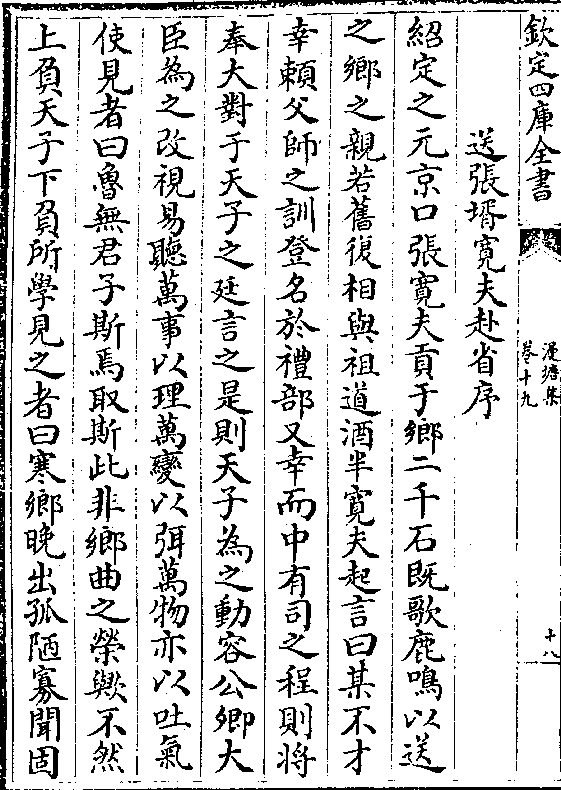 欽定四庫全書
漫塘集
卷十九
十八
送張壻寛夫赴省序
紹定之元京口張寛夫貢于鄉二千石既歌鹿鳴以送
之鄉之親若舊復相與祖道酒半寛夫起言曰某不才
幸頼父師之訓登名於禮部又幸而中有司之程則將
奉大對于天子之廷言之是則天子為之動容公卿大
臣為之改視易聽萬事以理萬變以弭萬物亦以吐氣
使見者曰魯無君子斯焉取斯此非鄉曲之榮歟不然
上負天子下負所學見之者曰寒鄉晚出孤陋寡聞固